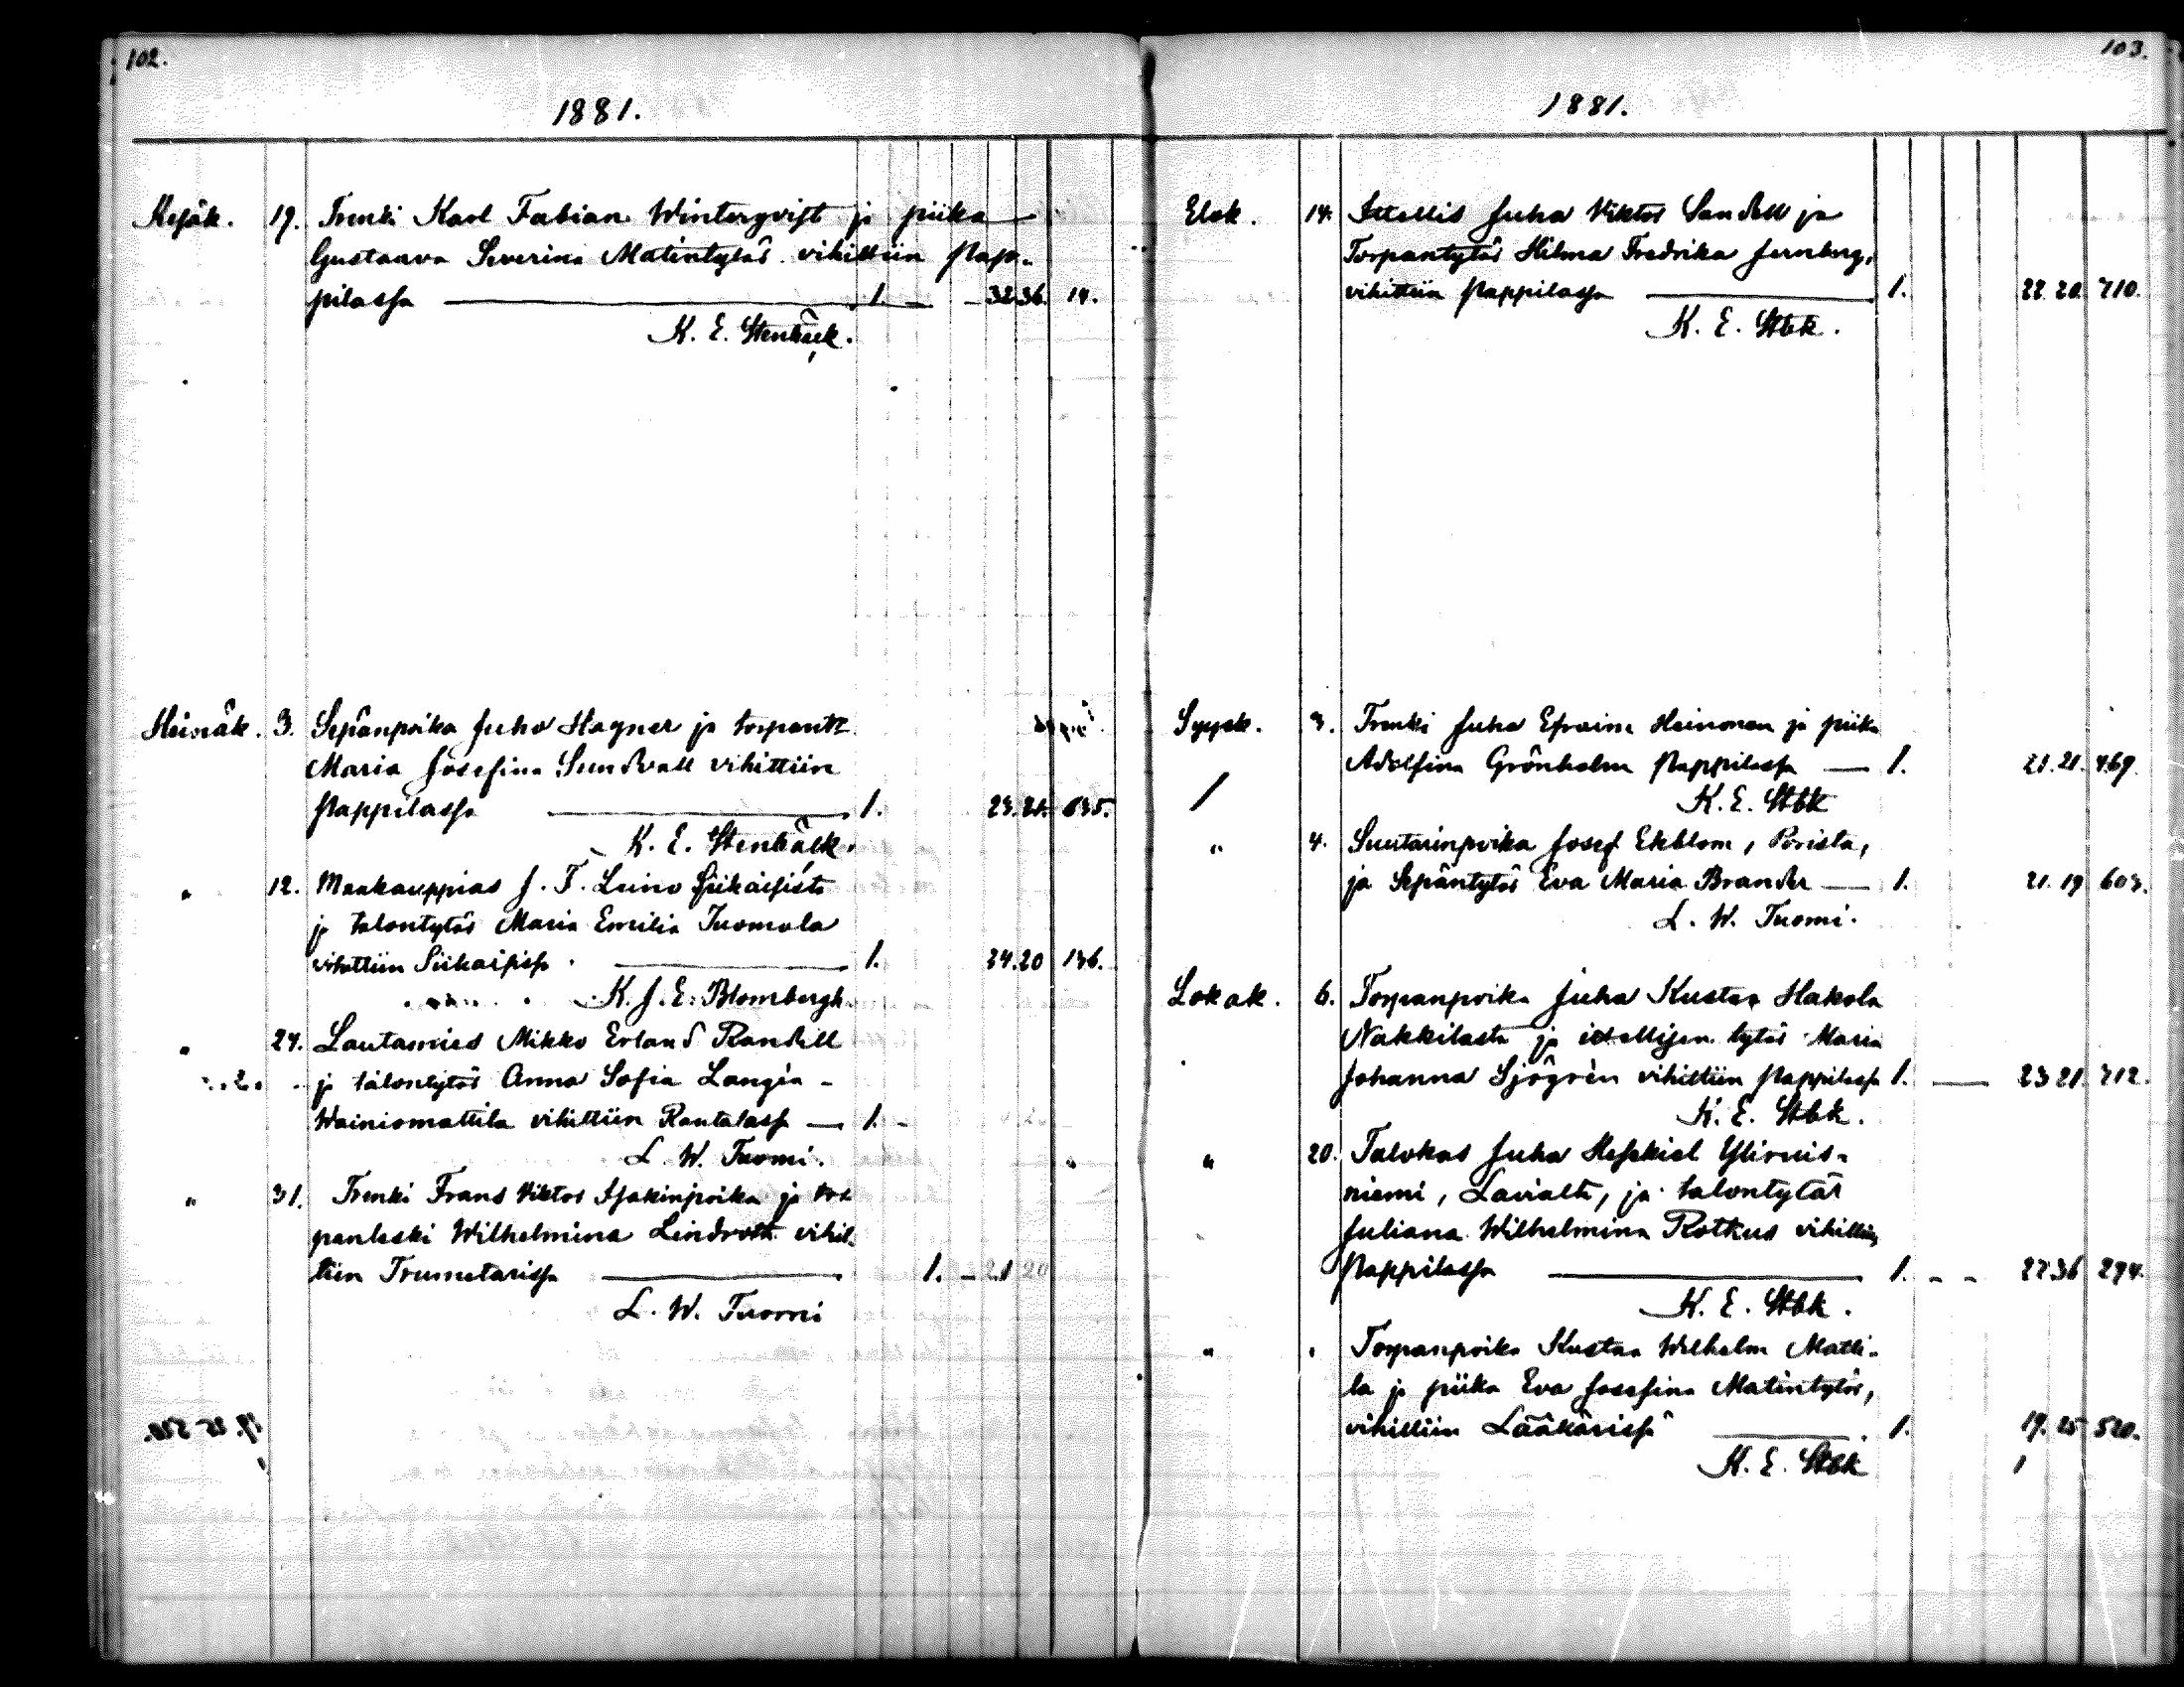 102.
1881.
Kesäk. 19. Trenki Karl Fabian Wintergvist ja piika
Gustaava Severina Matintytär vihittiin Pap-
pilassa 1. 32 36. 14.
K. E. Stenbäck.
Heinäk. 3. Sepänpoika Juho Hagner ja torpantr.
Maria Josefina Sundvall vihittiin
Pappilassa 1. 23. 21. 635.
K. E. Stenbäck.
" 12. Maakauppias J. F. Leino Siikaisista
ja talontytär Maria Emilia Tuomola
vihittiin Siikaisissa 1. 24. 20 136.
K. J. E. Blombergh.
" 24. Lautamies Mikko Erland Randell
ja talontytär Anna Sofia Langèn-
Wainiomattila vihittiin Rantalassa 1.
L. W. Tuomi.
" 31. Trenki Frans Viktor Isakinpoika ja tor-
panleski Wilhelmina Lindroth vihit-
tiin Trumetarissa 1. 21 20
L. W. Tuomi
103.
1881.
Elok. 14. Itsellis Juha Viktor Sandell ja
Torpantytär Hilma Fredrika Jernberg,
vihittiin Pappilassa 1. 22. 20. 710.
K. E. Stbk.
Syysk. 3. Trenki Juha Efraim Heinonen ja piika
Adolfina Grönholm Pappilassa 1. 21. 21. 469.
K. E. Stbk
" 4. Suutarinpoika Josef Ekblom, Porista,
ja Sepäntytär Eva Maria Brander 1. 21. 19 603.
L. W. Tuomi.
Lokak. 6. Torpanpoika Juha Kustaa Hakola
Nakkilasta ja itsellisen tytär Maria
Johanna Sjögrèn vihittiin Pappilassa 1. 23 21. 712.
K. E. Stbk.
" 20. Talokas Juha Heskiel Yliruis-
niemi, Lavialta, ja talontytär
Juliana Wilhelmina Rotkus vihittiin
Pappilassa 1. 22 36 294.
K. E. Stbk.
" " Torpanpoika Kustaa Wilhelm Matti-
la ja piika Eva Josefina Matintytär,
vihittiin Lääkärissä 1. 19. 25 520.
K. E. Stbk